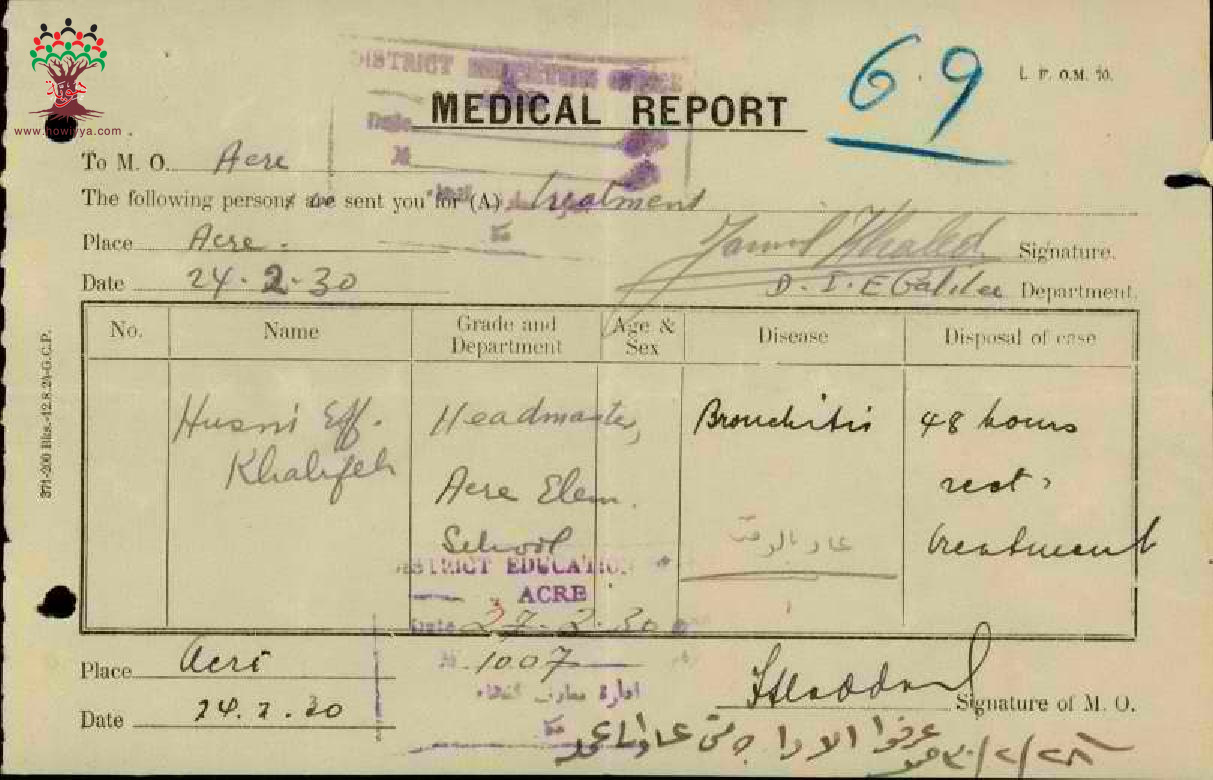 www.howiyya.com
DISTRICT EDUCATION OFFICE
69
L. F. O.M. 10.
MEDICAL REPORT
Date
To M. O. Acre
The following person are sent you for (A) treatment
Place Acre.
Jamil Khaled Signature.
Date 24.2.30
D. I. E Galilee Department.
No. Name Grade and Department Age & Sex Disease Disposal of case
Husni Eff. Khalifeh
Headmaster, Acre Elem. School
Bronchitis
48 hours rest, treatment
عاد بالوقت
371-200 Bks.-12.8.24-G.C.P.
DISTRICT EDUCATION
ACRE
Date 27.2.30
1007
ادارة معارف
Place Acre
Date 24.2.30
Signature of M. O.